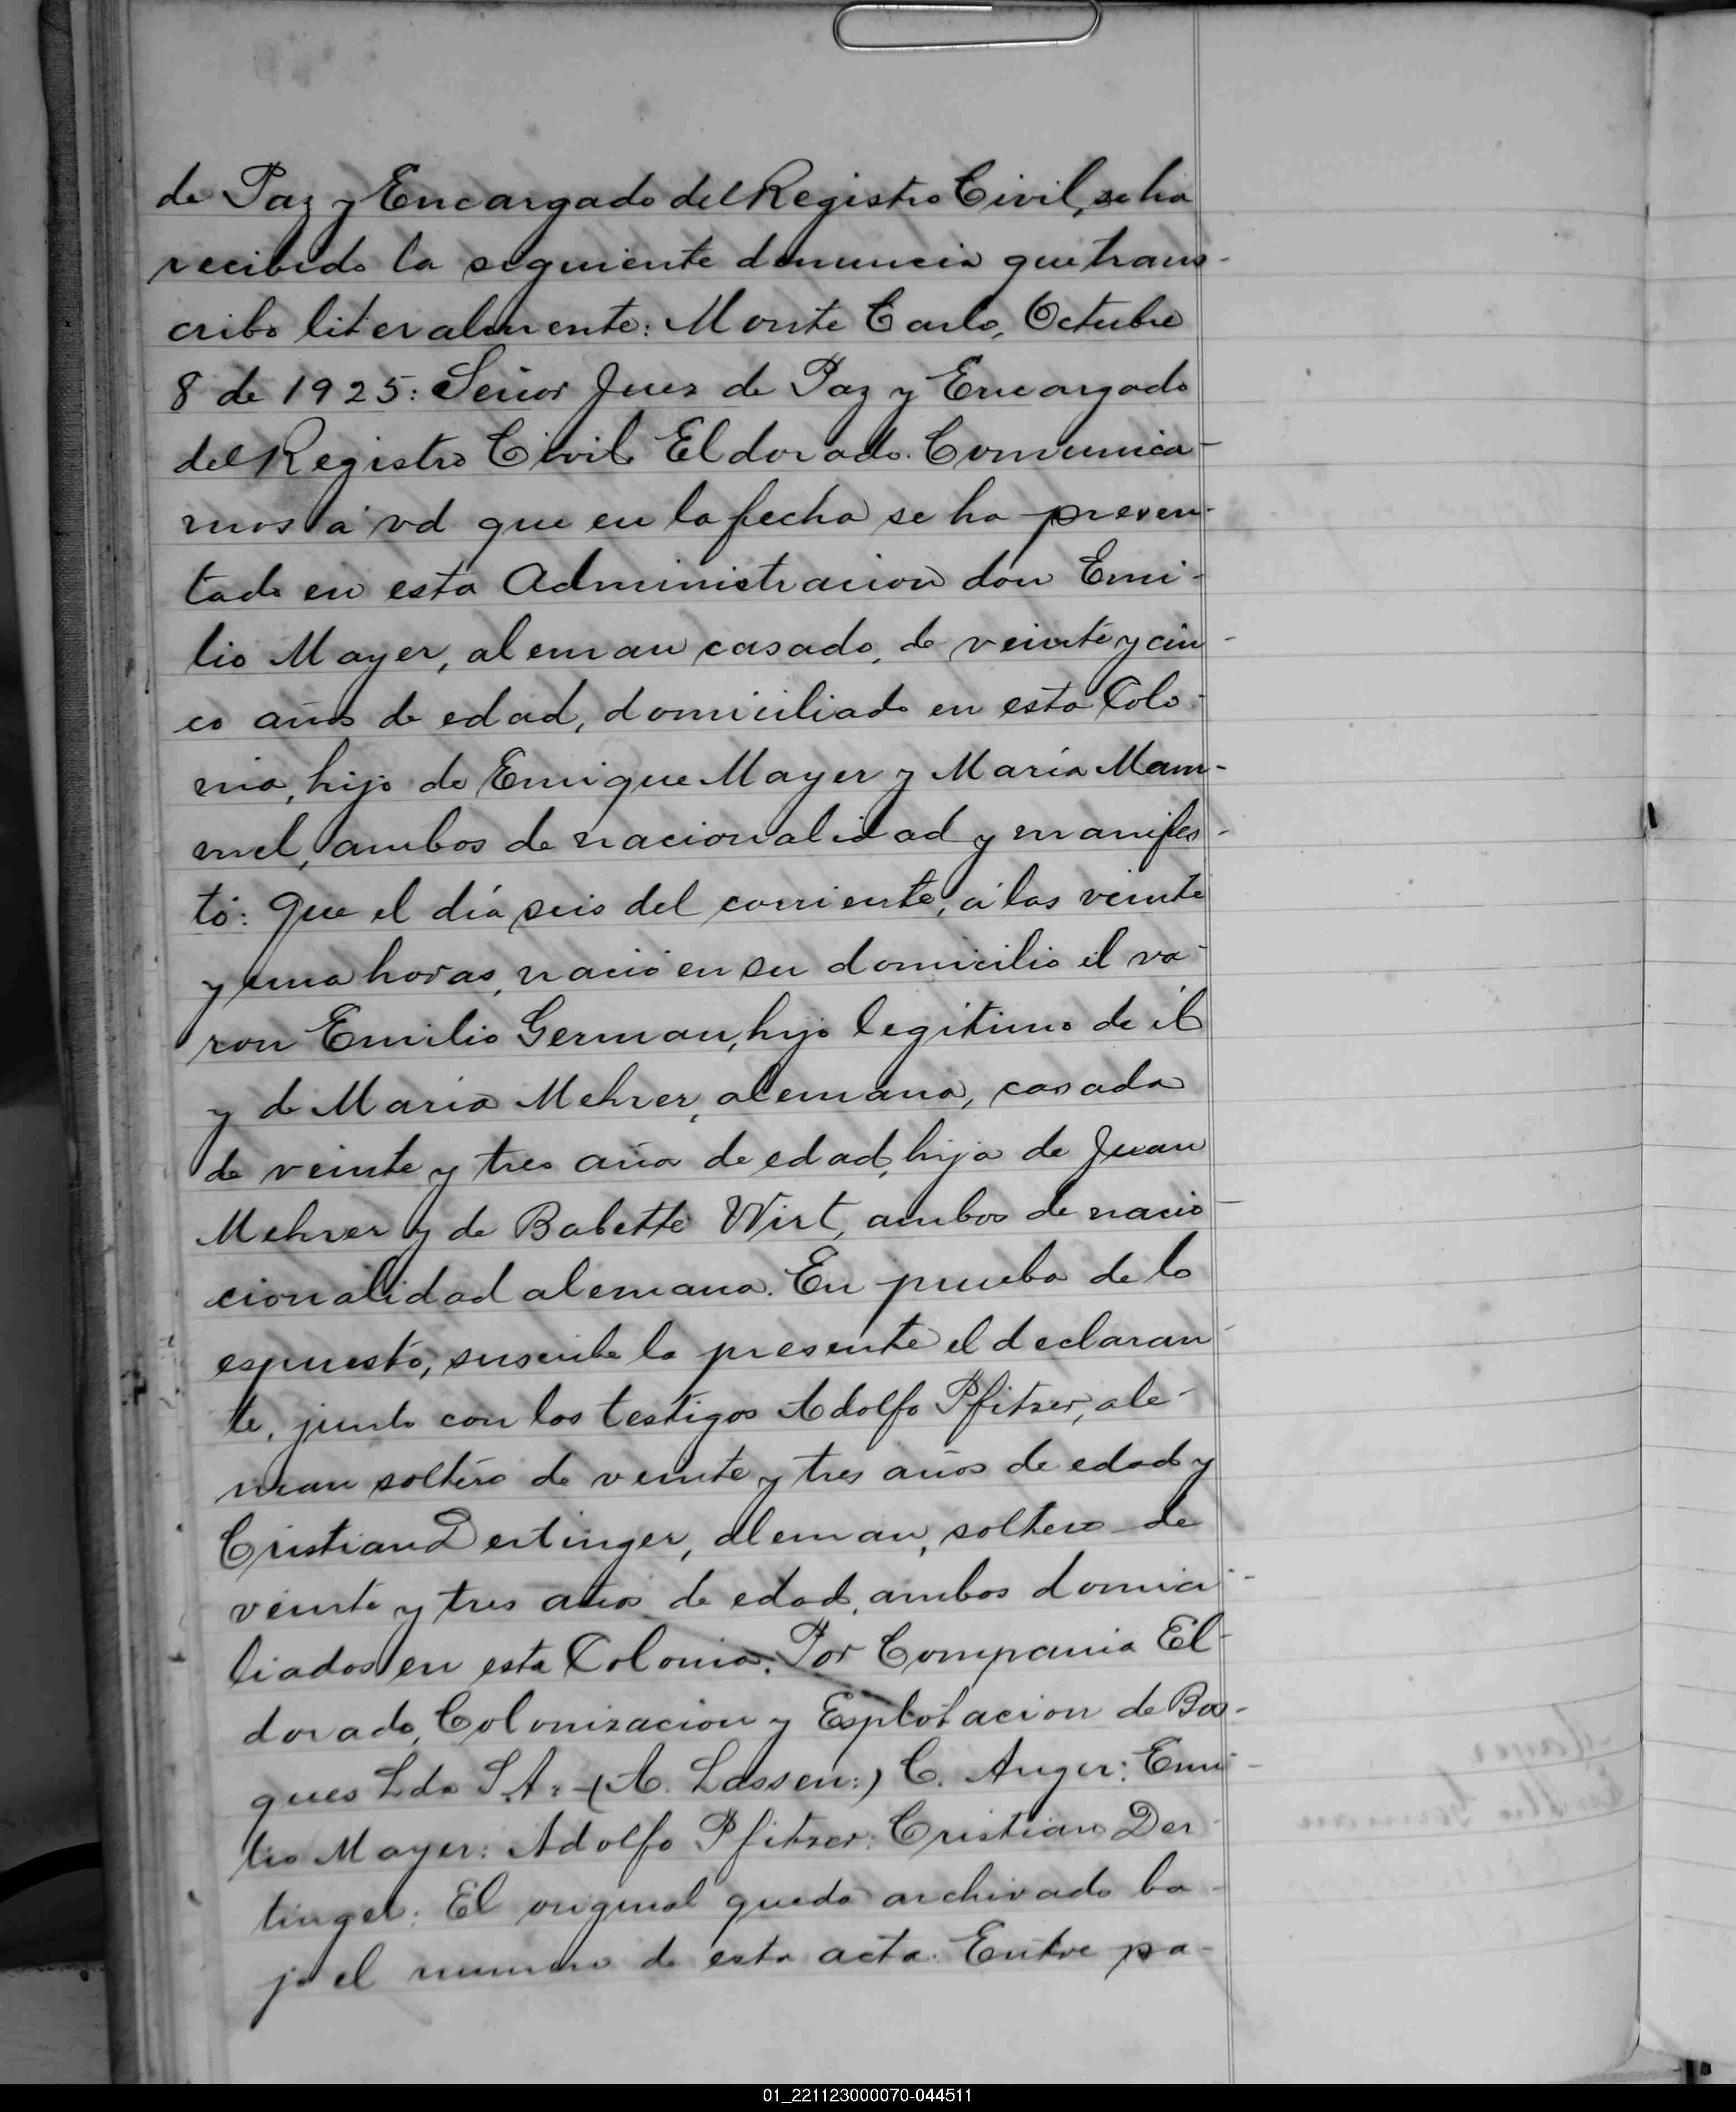 de Paz y Encargado del Registro Civil, se ha
recibido la siguiente denuncia que trans-
cribo literalmente: Monte Carlo, Octubre
8 de 1925: Señor Juez de Paz y Encargado
del Registro Civil Eldorado. Comunica-
mos á vd que en la fecha se ha presen-
tado en esta Administracion don Emi-
lio Mayer, aleman casado, de veinte y cin-
co años de edad, domiciliado en esta Colo-
nia, hijo de Enrique Mayer y María Mam-
mel, ambos de nacionalidad y manifes-
tó: que el día seis del corriente, á las veinte
y una horas, nació en su domicilio el va-
ron Emilio German, hijo legitimo de él
y de María Mehrer, alemana, casada
de veinte y tres año de edad, hija de Juan
Mehrer y de Babette Wirt, ambos de nacio
cionalidad alemana. En prueba de lo
espuesto, suscribe la presente el declaran-
te, junto con los testigos Adolfo Pfitzer, ale-
man soltero de veinte y tres años de edad y
Cristian Dertinger, aleman, soltero de
veinte y tres años de edad, ambos domici-
liados en esta Colonia. Por Compania El-
dorado, Colonizacion y Esplotacion de Bos-
ques Lda S.A. - (A. Lassen:) C. Auger: Emi-
lio Mayer: Adolfo Pfitzer: Cristian Der-
tinger: El original queda archivado ba-
jo el numero de esta acta. Entre pa-
Mayer
Emilio German
01_221123000070-044511